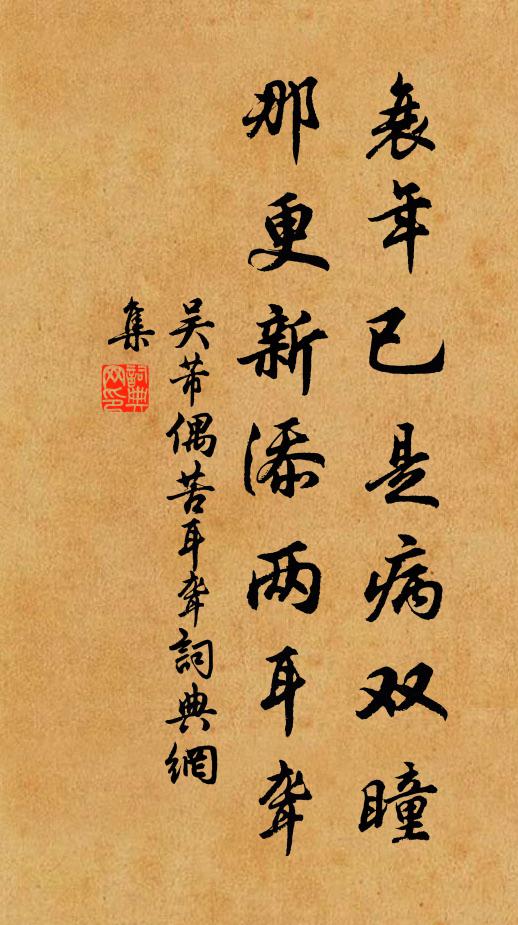 衰年已是病双瞳
那更新添两耳聋
吴芾偶苦耳聋詞典網
集
詞典网印